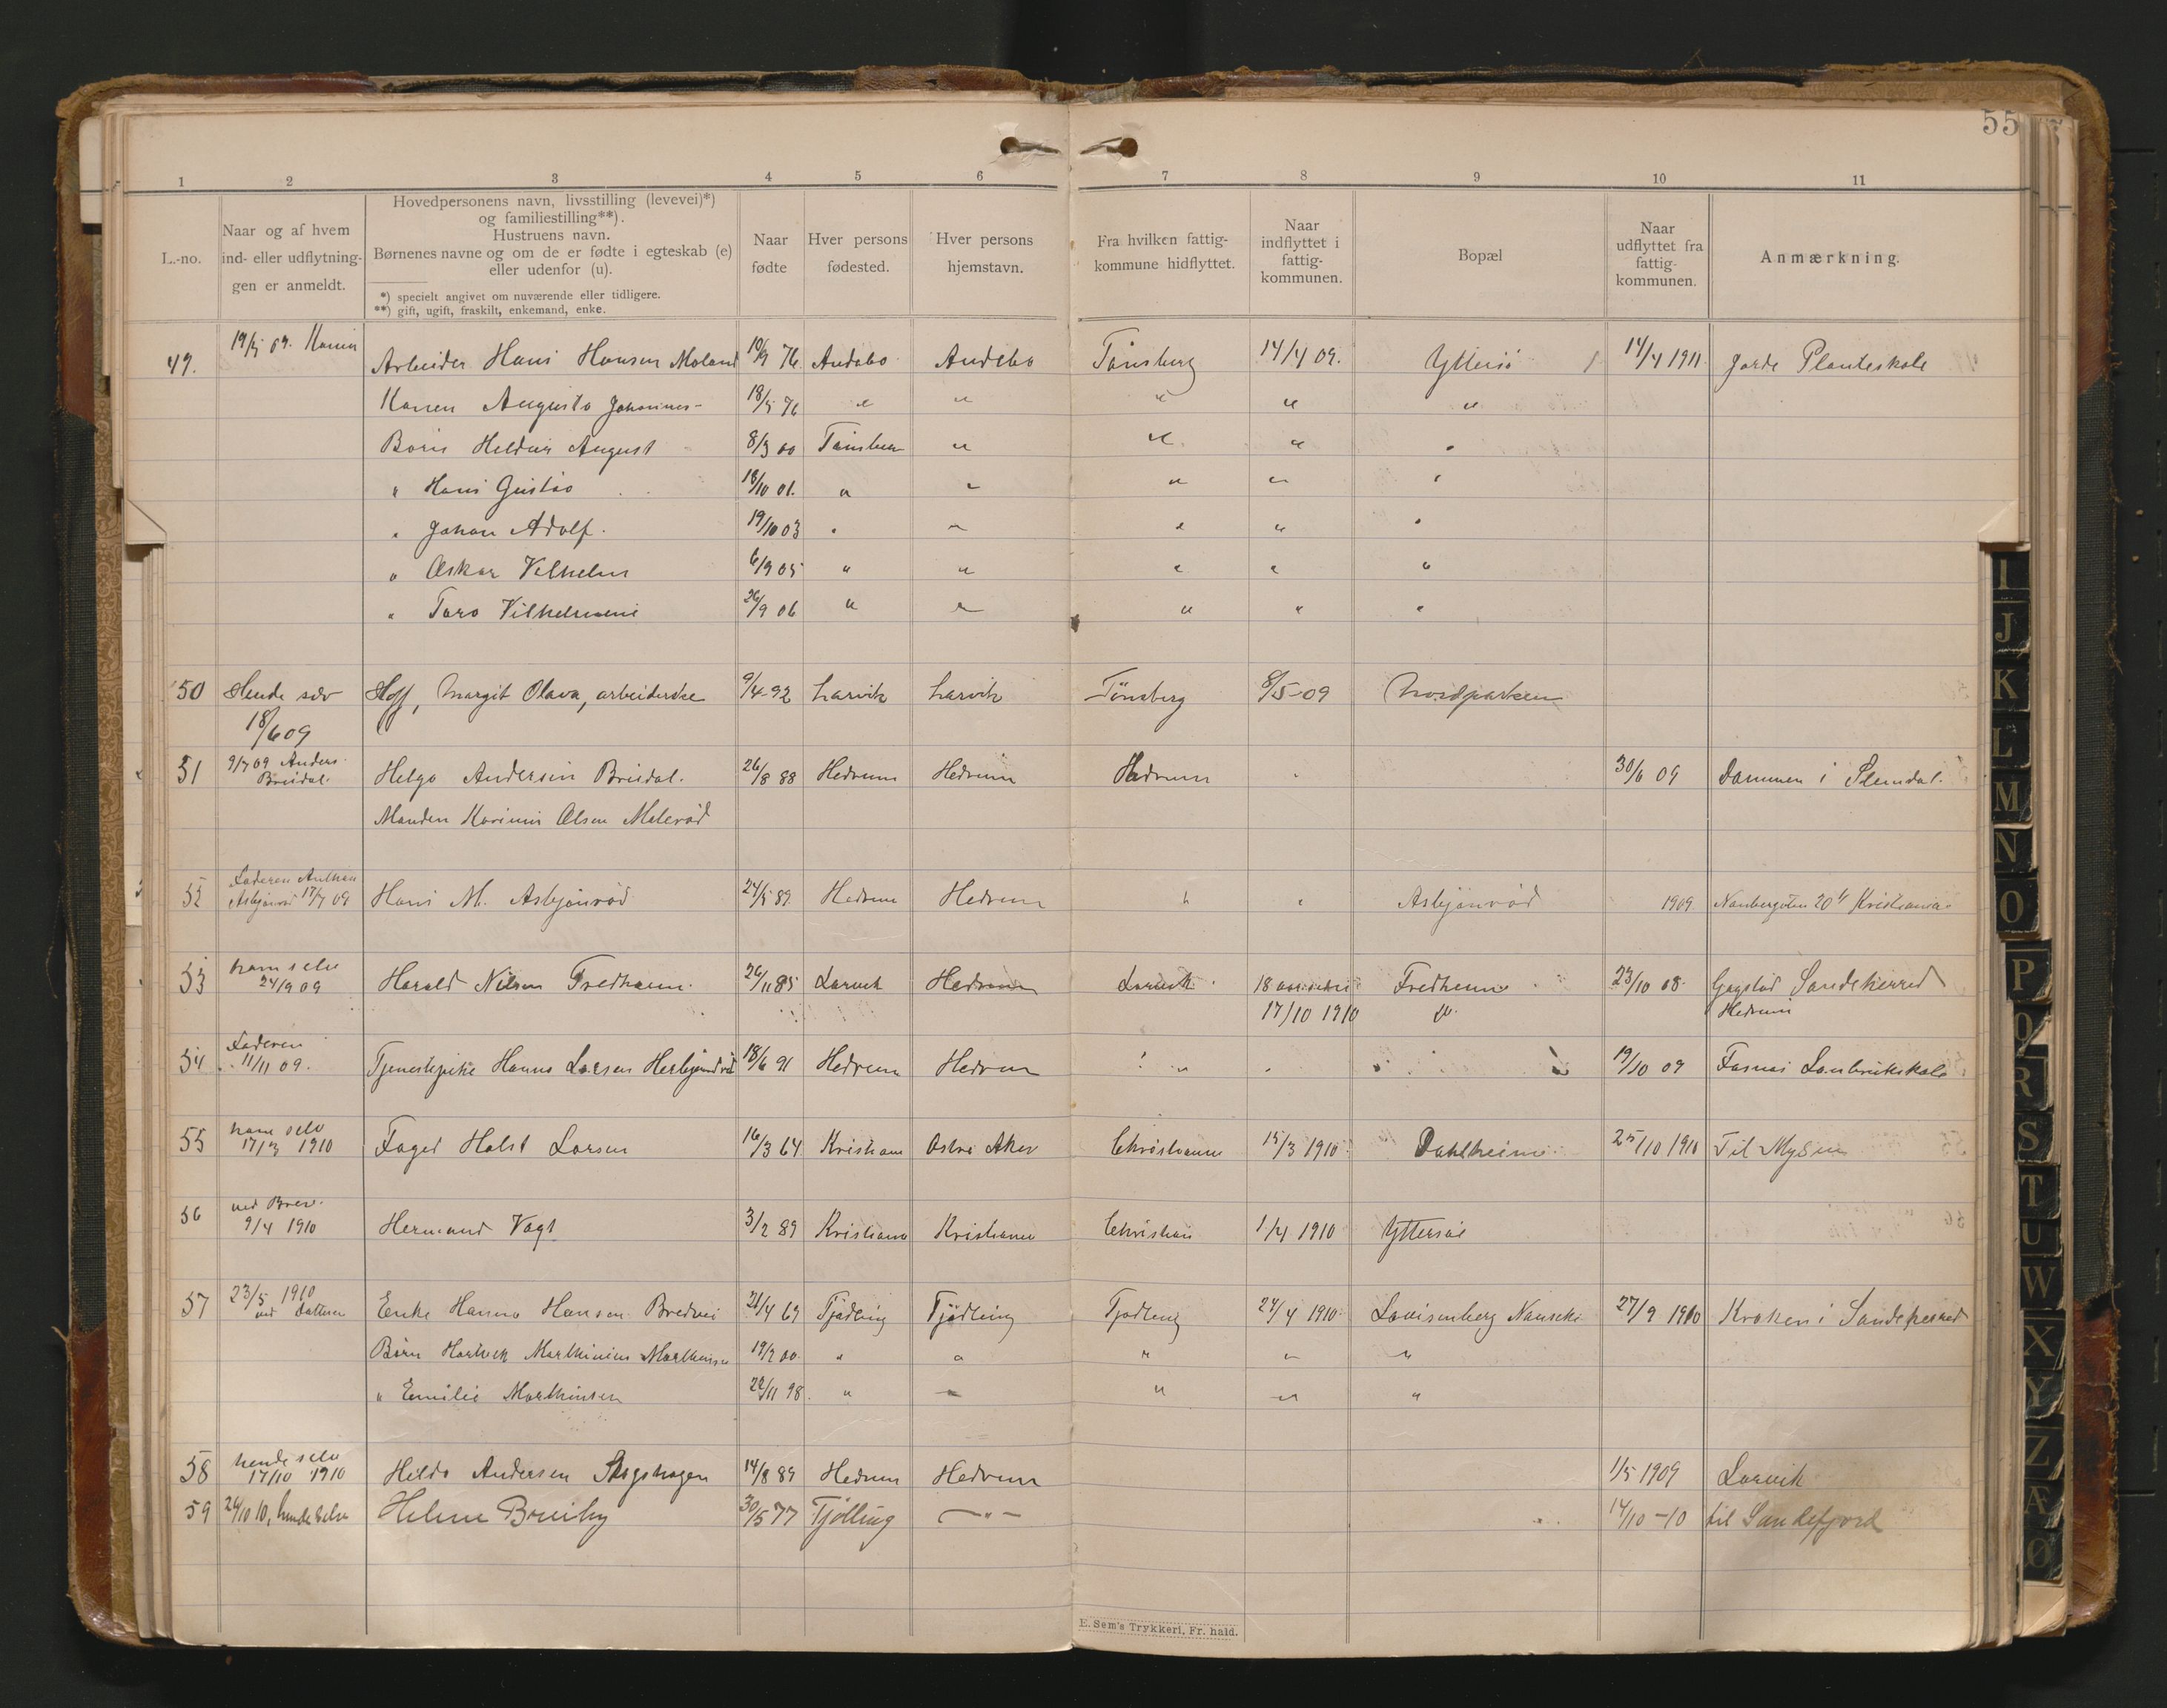 55
1 2 3 4 5 6 7 8 9 10 11
L.-no.
Naar og af hvem
ind- eller udflytnin-
gen er anmeldt.
Hovedpersonens navn, livsstilling (levevei)*)
og familiestilling**).
Hustruens navn.
Børnenes navne og om de er fødte i egteskab (e)
eller udenfor (u).
*) specielt angivet om nuværende eller tidligere.
**) gift, ugift, fraskilt, enkemand, enke.
Naar
fødte
Hver persons
fødested.
Hver persons
hjemstavn.
Fra hvilken fattig-
kommune hidflyttet.
Naar
indflyttet i
fattig-
kommunen.
Bopæl
Naar
udflyttet fra
fattig-
kommunen.
Anmærkning.
49. 19/5 09. Arbeider Hans Hansen Moland 10/9 76. Andebo Andebo Tønsberg 14/4 09. Yttersö 14/4 1911. Jorde Planteskole
Karen Augusta Johannes- 18/5 76 " " " " "
Börn Heldur August 8/3 00 Tönsberg " " " "
" Hans Gustav 18/10 01. " " " " "
" Johan Adolf. 19/10 03 " " " " "
" Oskar Vilhelm 6/9 05 " " " " "
" Tora Vilhelmine 26/9 06 " " " " "
50 Hende selv Hoff, Margit Olava, arbeiderske 9/4-92 Larvik Larvik Tönsberg 8/5-09 Nordparken
18/6 09
51 9/7 09 Anders Breidal. Helga Andersen Breidal. 26/8 88 Hedrum Hedrum Hedrum " 30/6 09 Dammen i Slemdal.
Manden Karinius Olsen Holeröd
52 Faderen Anthon
Asbjönröd 17/7 09 Hans M. Asbjönröd 24/5 89. Hedrum Hedrum " " Asbjönröd 1909. 20 b Kristiania
53 ham selv
24/9 09 Harald Nilsen Fredheim. 26/11 85 Larvik Hedrum Larvik 18 Fredheim 23/10 08. Gogstad Sandeherred
17/10 1910 do. Hedrum
54 Faderen
11/11 09. Tjenestepike Hanna Larsen 18/6 91 Hedrum Hedrum " " 19/10 09 Fosnas Landbrukskole
55 ham selv
17/3 1910 Faged Holst Larsen 16/3 64 Kristiania Östre Aker Christiania 15/3 1910. Dahlheim 25/10 1910 Til Mysen
56 ved Brev.
9/4 1910 Hermand Vogt 3/2 89 Kristiania Kristiania Christian 1/4 1910 Yttersö
57 23/5 1910
ved datteren Enke Hanna Hansen Bredvei 21/4 69 Tjödling Tjödling Tjodling 24/4 1910. Louisenberg Nanseth 27/9 1910 Kroken i Sandeherred
Börn Marthinius Marthinsen 19/2 00. " " " " "
" Emilie Marthinsen 22/11 98. " " " " "
58 hende selv
17/10 1910 Hilda Andersen Skogshagen 14/8 89 Hedrum Hedrum 1/5 1909 Larvik
59 24/10 10, hende selv Helene Breiby 30/5 77 Tjölling — " — 14/10 -10 til Sandefjord
E. Sem's Trykkeri, Fr. hald.
I
J
K
L
M
N
O
P
Q
R
S
T
U
W
X
Y
Z
Æ
Ø